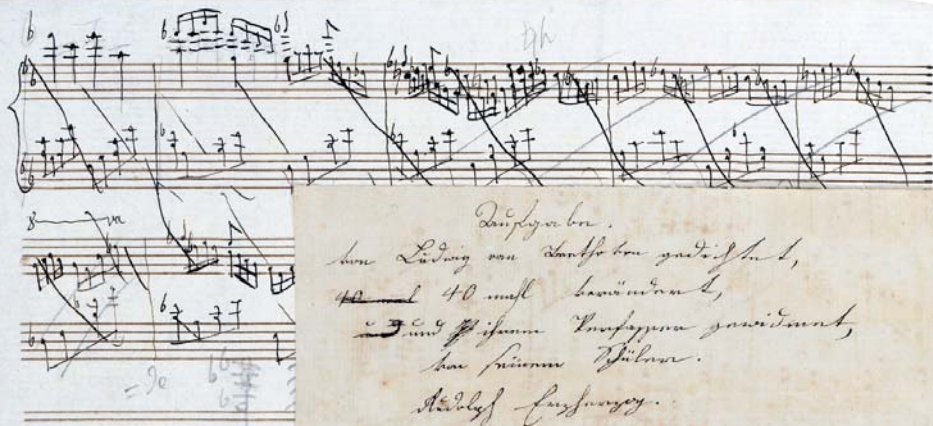 Aufgabe.
von Ludwig van Beethoven gedichtet,
40 mahl verändert,
und ihrem Verfasser gewidmet,
von seinem Schüler.
Rudolph Erzherzog.